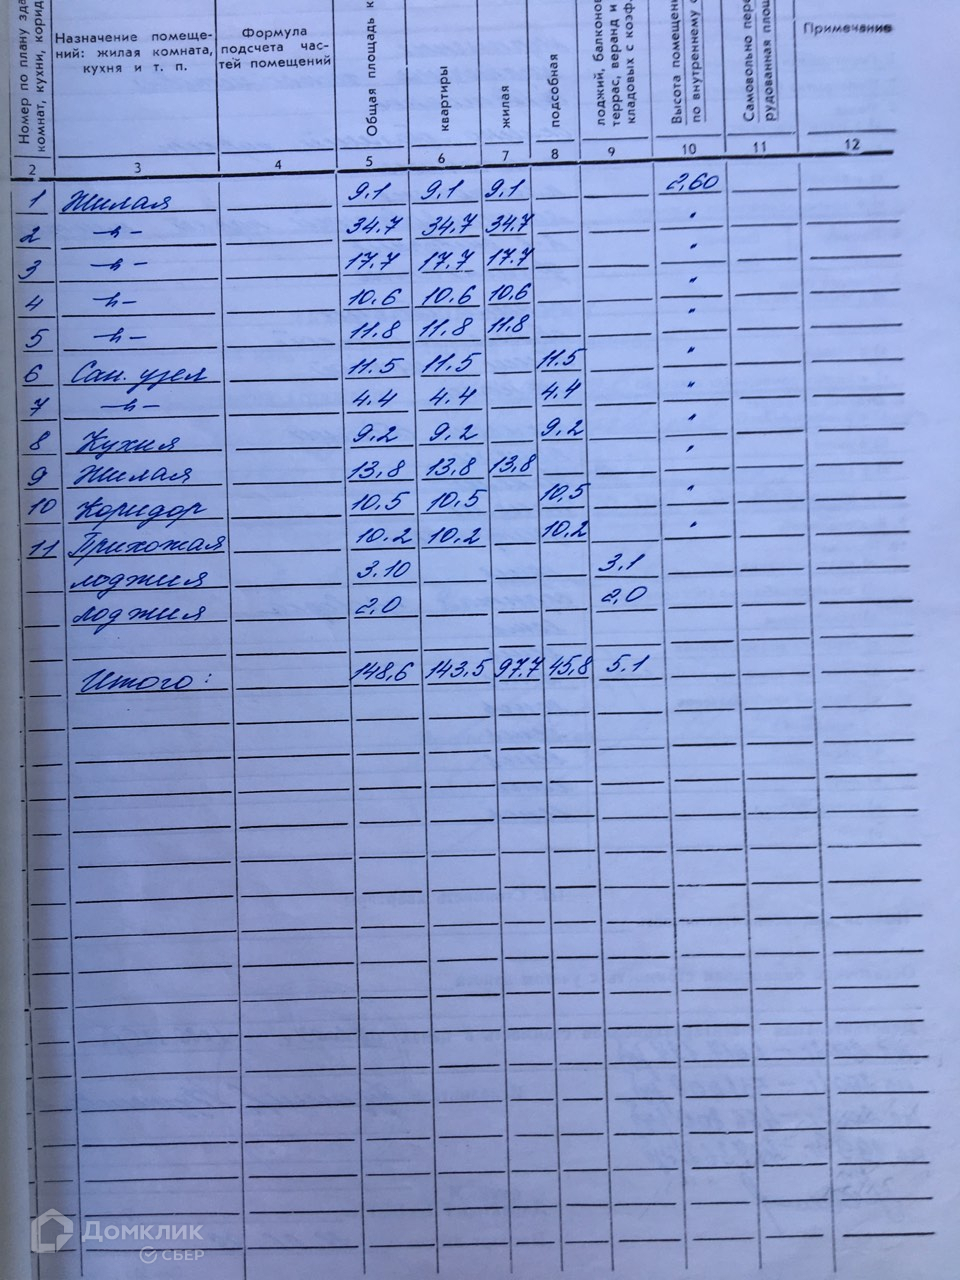 Номер по плану зда
комнат, кухни, корид
Назначение помеще-
ний: жилая комната,
кухня и т. п.
Формула
подсчета час-
тей помещений
Общая площадь к
квартиры
жилая
подсобная
лоджий, балконов
террас, веранд и
кладовых с коэф
Высота помещени
по внутреннему о
Самовольно пере
рудованная площ
Примечание
2 3 4 5 6 7 8 9 10 11 12
1 Жилая 9.1 9.1 9.1 2,60
2 -"- 34.7 34.7 34.7 "
3 -"- 17.7 17.7 17.7 "
4 -"- 10.6 10.6 10.6 "
5 -"- 11.8 11.8 11.8 "
6 Сан. узел 11.5 11.5 11.5 "
7 -"- 4.4 4.4 4.4 "
8 Кухня 9.2 9.2 9.2 "
9 Жилая 13,8 13,8 13,8 "
10 Коридор 10,5 10,5 10,5 "
11 Прихожая 10.2 10.2 10.2 "
лоджия 3.10 3.1
лоджия 2,0 2,0
Итого: 148,6 143,5 97.7 45,8 5.1
Домклик
СБЕР